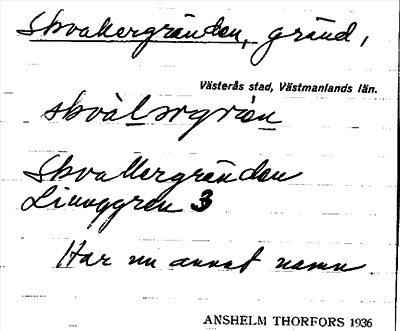 Skvallergränden, gränd,
Västerås stad, Västmanlands län.
skvàlərgrän
Skvallergränden
Linnggren 3
Har nu annat namn
ANSHELM THORFORS 1936